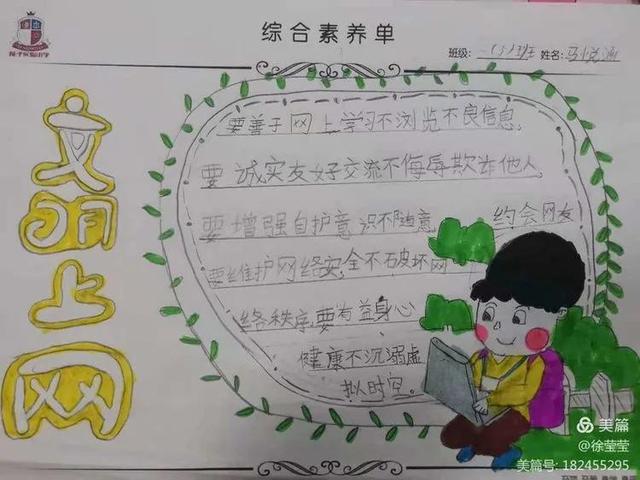 综合素养单
班级: 一(5)班 姓名:
文明上网
要善于网上学习不浏览不良信息,
要诚实友好交流不侮辱欺诈他人
要增强自护意识不随意约会网友
要维护网络安全不破坏网
络秩序,要有益身心
健康不沉溺虚
拟时空。
美篇
@徐莹莹
美篇号: 182455295